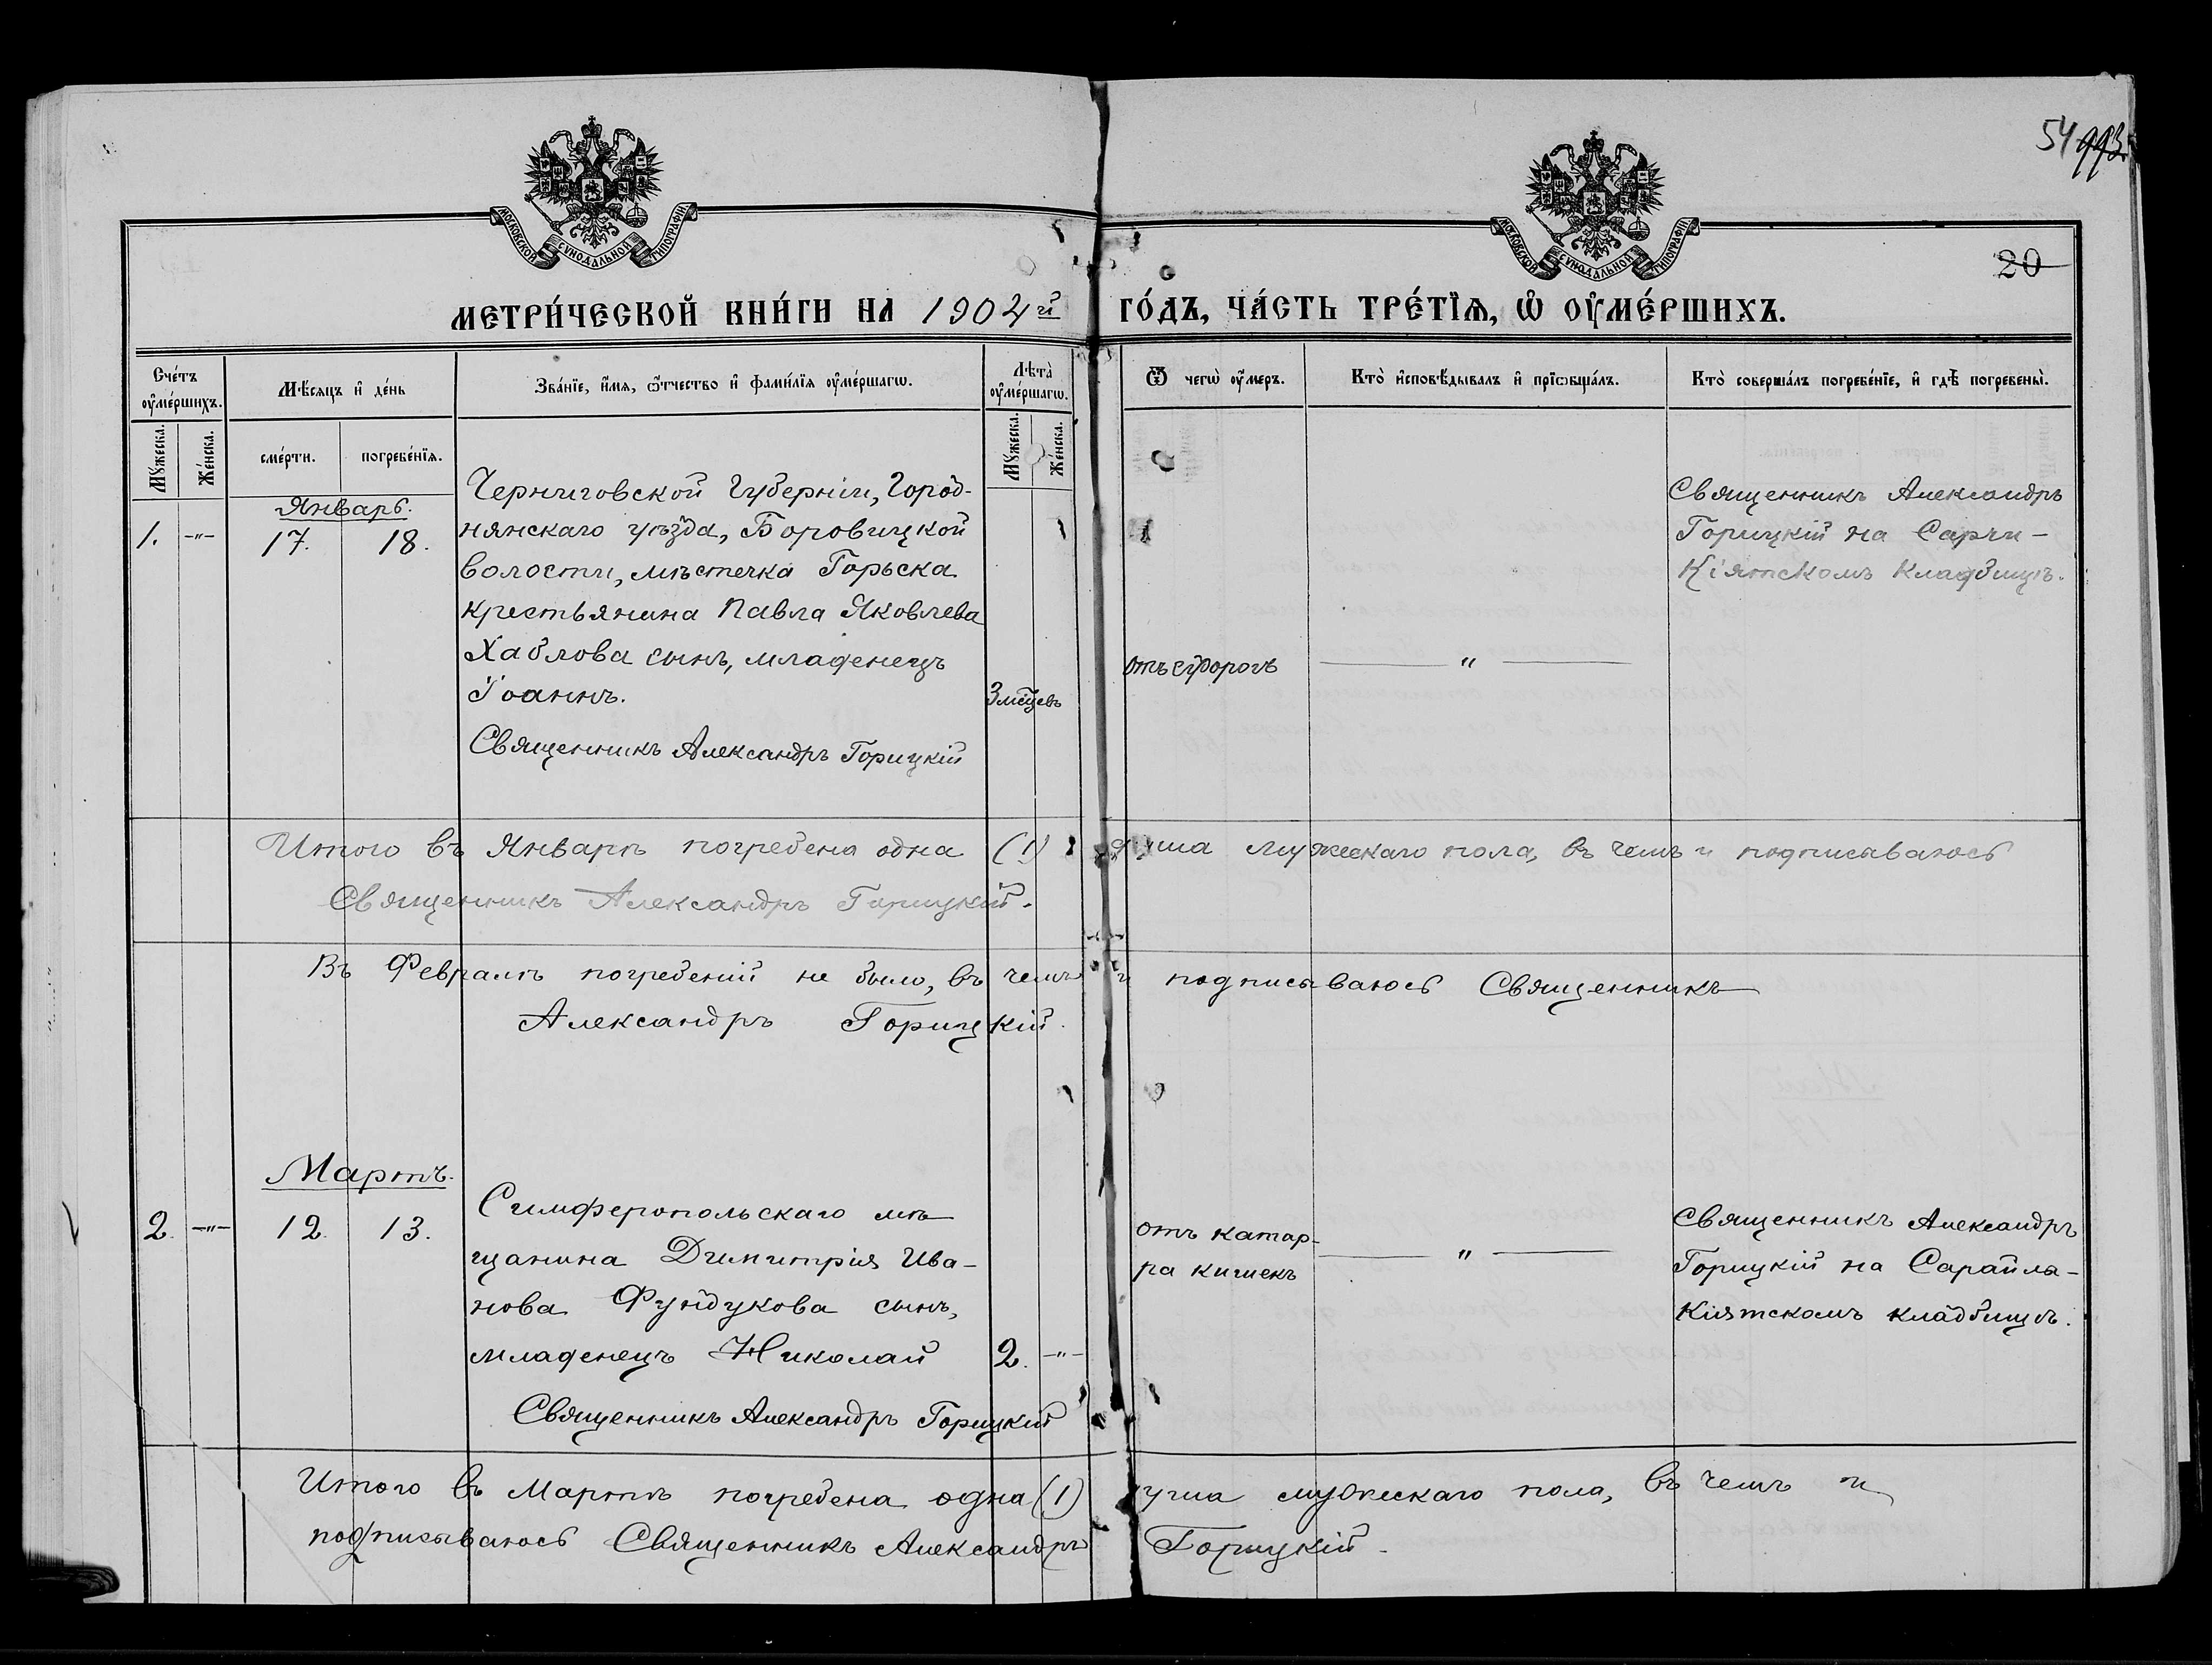 54 993
МОСКОВСКОЙ СѴНОДАЛЬНОЙ ТИПОГРАФІИ
МОСКОВСКОЙ СѴНОДАЛЬНОЙ ТИПОГРАФІИ
20
МЕТРИ́ЧЕСКОЙ КНИ́ГИ НА 1904й ГО́ДЪ, ЧА́СТЬ ТРЕ́ТЇѦ, Ѡ҆ ОУ҆МЕ́РШИХЪ.
Сче́тъ оу҆ме́ршихъ.
Мѣ́сяцъ и҆ де́нь
Зва́нїе, и҆́мя, ѻ҆́тчество и҆ фами́лїя оу҆ме́ршагѡ.
Лѣта̀ оу҆ме́ршагѡ.
Ѿ чегѡ̀ оу҆́меръ.
Кто̀ и҆сповѣ́дывалъ и҆ прїѡбща́лъ.
Кто̀ соверша́лъ погребе́нїе, и҆ гдѣ̀ погребены̀.
Мꙋжеска.
Же́нска.
сме́рти.
погребе́нїя.
Мꙋжеска.
Же́нска.
Январь.
1. -"- 17. 18.
Черниговской Губерніи, Город-
нянскаго уѣзда, Боровицкой
волости, мѣстечка Горьска
крестьянина Павла Яковлева
Хаблова сынъ, младенецъ
Іоаннъ.
3 мѣсцевъ
Священникъ Александръ Горицкій
отъ
"
Священникъ Александръ
Горицкій на Сарчи-
Кіятскомъ кладбищѣ.
Итого въ Январѣ погребена одна (1) душа мужескаго пола, въ чемъ и подписываюсь
Священникъ Александръ Горицкій.
Въ Февралѣ погребеній не было, въ чемъ и подписываюсь Священникъ
Александръ Горицкій.
Мартъ.
2. -"- 12. 13.
Симферопольскаго мѣ-
щанина Димитрія Ива-
нова Фундукова сынъ,
младенецъ Николай
2. -"-
Священникъ Александръ Горицкій
отъ катар-
ра кишекъ
"
Священникъ Александръ
Горицкій на Сарайла-
Кіятскомъ кладбищѣ.
Итого въ Мартѣ погребена одна (1) душа мужескаго пола, въ чемъ и
подписываюсь Священникъ Александръ Горицкій.